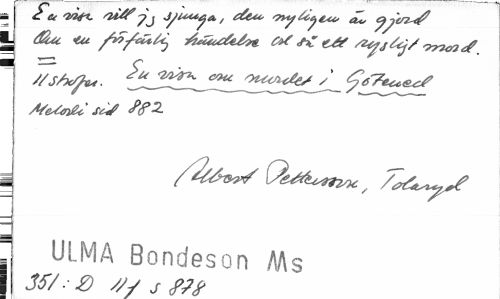 En visa vill jg sjunga, den nyligen är gjord
Om en förfärlig händelse och så ett rysligt mord.
11 strofer. En visa om mordet i Götened
Melodi sid 882
Albert Pettersson, Tolaryd
ULMA Bondeson Ms
351:D 11f s 878